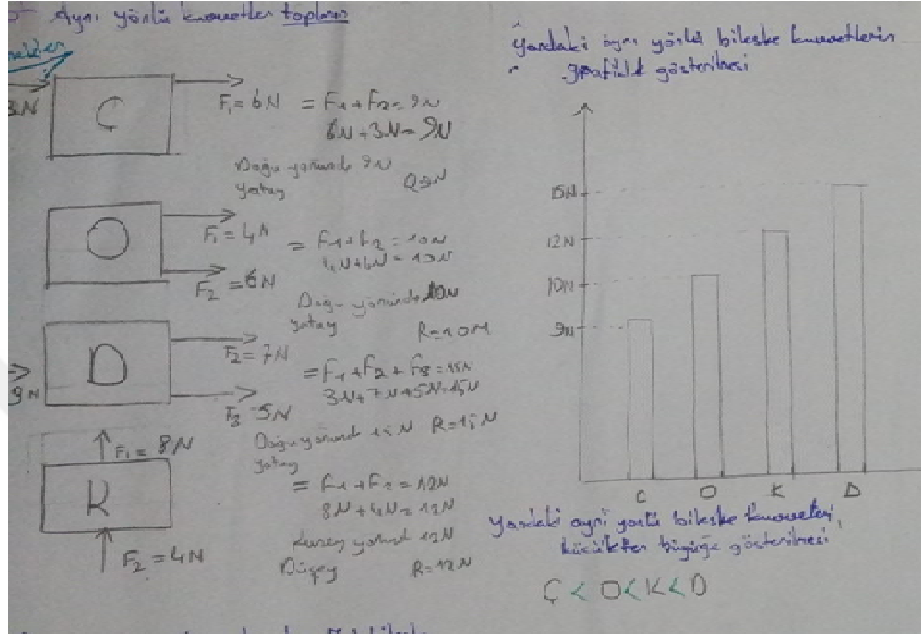 Aynı yönlü kuvvetler toplamı
3N
Ç
F₁= 6N = F₁+F₂= 9N
6N+3N= 9N
Doğu yönünde 9N
yatay
O
F₁= 4N = F₁+F₂ = 10N
4N+6N = 10N
F₂ = 6N
Doğu yönünde 10N
yatay R=10N
D
F₂= 7N
= F₁+F₂+F₃ = 15N
3N+7N+5N=15N
F₃ 5N
Doğu yönünde R=15N
yatay
F₁= 8N
K
= F₁+F₂ = 12N
8N+4N= 12N
F₂ = 4N
Kuzey yönünde 12N
Düşey R=12N
Yandaki aynı yönlü bileşke kuvvetlerin
grafikle gösterilmesi
15N
12N
10N
9N
C O K D
Yandaki aynı yönlü bileşke kuvvetleri
küçükten büyüğe gösterilmesi
Ç < O < K < D